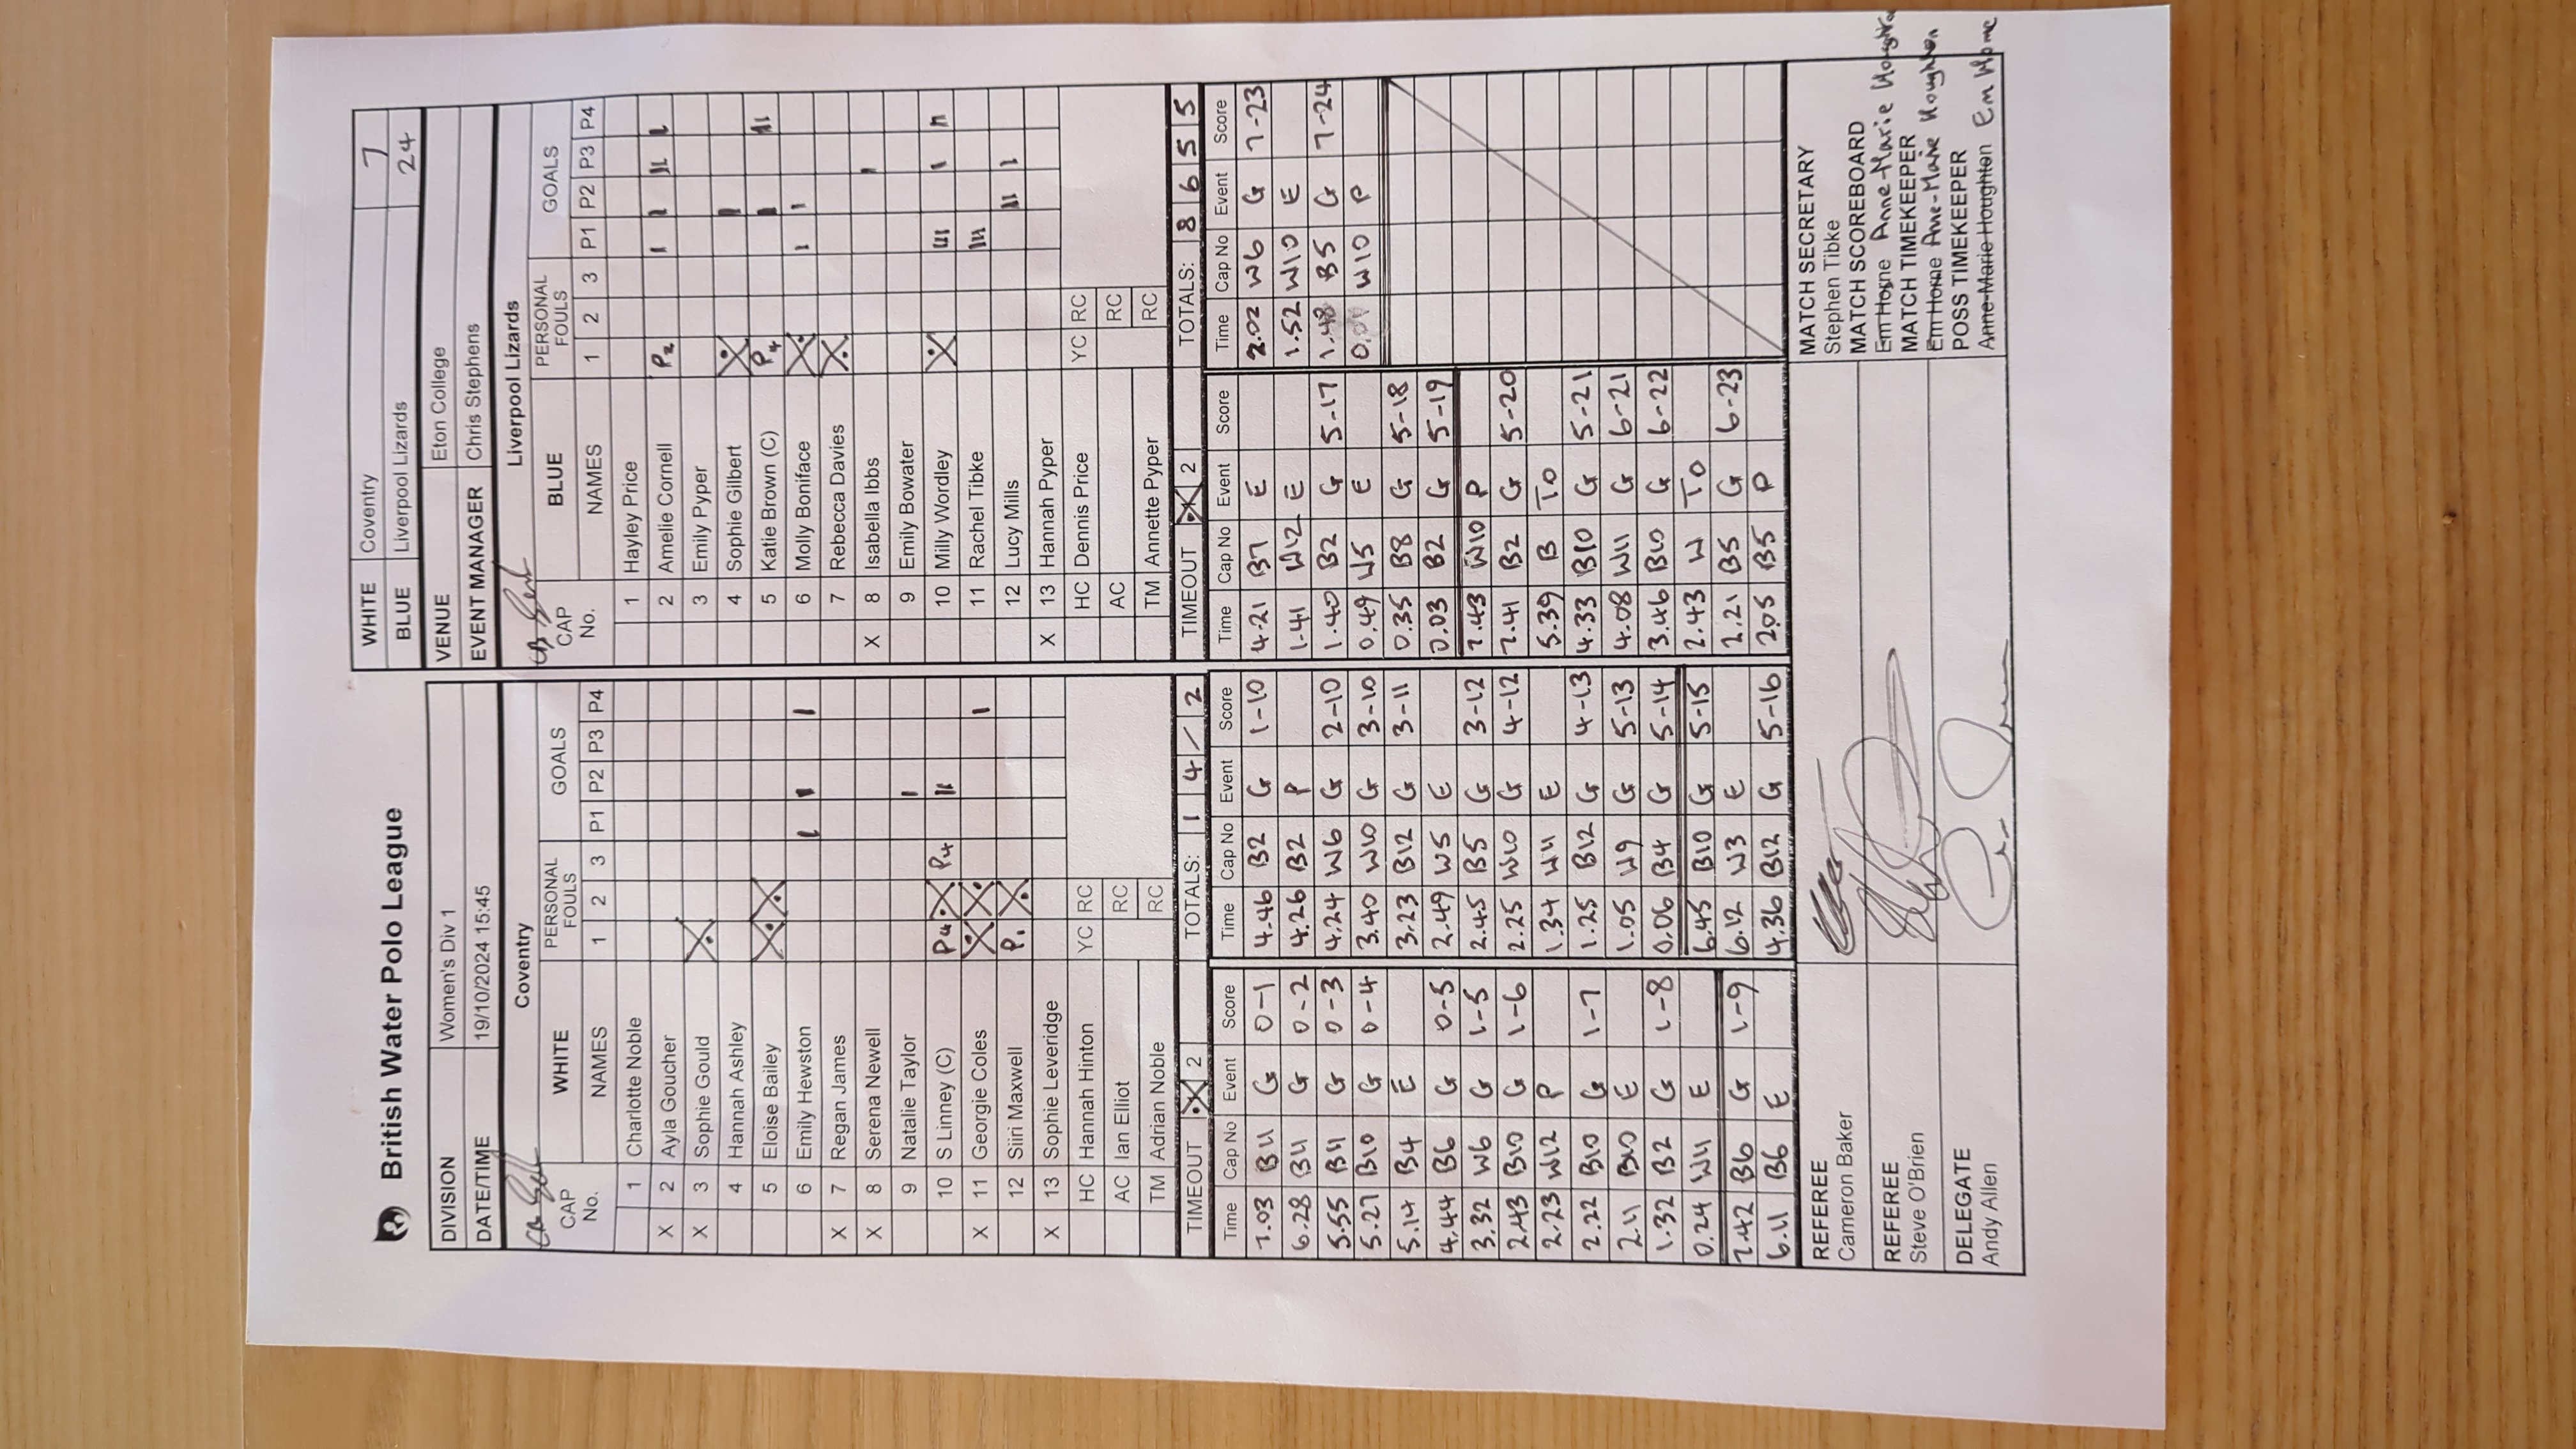 British Water Polo League
WHITE Coventry 7
BLUE Liverpool Lizards 24
DIVISION Women's Div 1
VENUE Eton College
DATE/TIME 19/10/2024 15:45
EVENT MANAGER Chris Stephens
Coventry
CAP No. WHITE NAMES PERSONAL FOULS 1 2 3 GOALS P1 P2 P3 P4
1 Charlotte Noble
X 2 Ayla Goucher
X 3 Sophie Gould
4 Hannah Ashley
5 Eloise Bailey
6 Emily Hewston I I I
X 7 Regan James
X 8 Serena Newell
9 Natalie Taylor I
10 S Linney (C) P4 P4 II
X 11 Georgie Coles I
12 Siiri Maxwell P1
X 13 Sophie Leveridge
HC Hannah Hinton YC RC
AC Ian Elliot RC
TM Adrian Noble RC
TIMEOUT 2 TOTALS: 1 4 / 2
Liverpool Lizards
CAP No. BLUE NAMES PERSONAL FOULS 1 2 3 GOALS P1 P2 P3 P4
1 Hayley Price
2 Amelie Cornell P2 I I II I
3 Emily Pyper
4 Sophie Gilbert I
5 Katie Brown (C) P4 I III
6 Molly Boniface I I
7 Rebecca Davies
X 8 Isabella Ibbs I
9 Emily Bowater
10 Milly Wordley III I II
11 Rachel Tibke III
12 Lucy Mills II I
X 13 Hannah Pyper
HC Dennis Price YC RC
AC RC
TM Annette Pyper RC
TIMEOUT 2 TOTALS: 8 6 5 5
Time Cap No Event Score
7.03 B11 G 0-1
6.28 B11 G 0-2
5.55 B11 G 0-3
5.27 B10 G 0-4
5.14 B4 E
4.44 B6 G 0-5
3.32 W6 G 1-5
2.43 B10 G 1-6
2.23 W12 P
2.22 B10 G 1-7
2.11 B10 E
1.32 B2 G 1-8
0.24 W11 E
7.42 B6 G 1-9
6.11 B6 E
Time Cap No Event Score
4.46 B2 G 1-10
4.26 B2 P
4.24 W6 G 2-10
3.40 W10 G 3-10
3.23 B12 G 3-11
2.49 W5 E
2.45 B5 G 3-12
2.25 W10 G 4-12
1.34 W11 E
1.25 B12 G 4-13
1.05 W9 G 5-13
0.06 B4 G 5-14
6.45 B10 G 5-15
6.12 W3 E
4.36 B12 G 5-16
Time Cap No Event Score
4.21 B7 E
1.41 W12 E
1.40 B2 G 5-17
0.49 W5 E
0.35 B8 G 5-18
0.03 B2 G 5-19
7.43 W10 P
7.41 B2 G 5-20
5.39 B TO
4.33 B10 G 5-21
4.08 W11 G 6-21
3.46 B10 G 6-22
2.43 W TO
2.21 B5 G 6-23
2.05 B5 P
Time Cap No Event Score
2.02 W6 G 7-23
1.52 W10 E
1.48 B5 G 7-24
0.01 W10 P
REFEREE
Cameron Baker
REFEREE
Steve O'Brien
DELEGATE
Andy Allen
MATCH SECRETARY
Stephen Tibke
MATCH SCOREBOARD
Em Horne Anne-Marie Houghton
MATCH TIMEKEEPER
Em Horne Anne-Marie Houghton
POSS TIMEKEEPER
Anne-Marie Houghton Em Horne